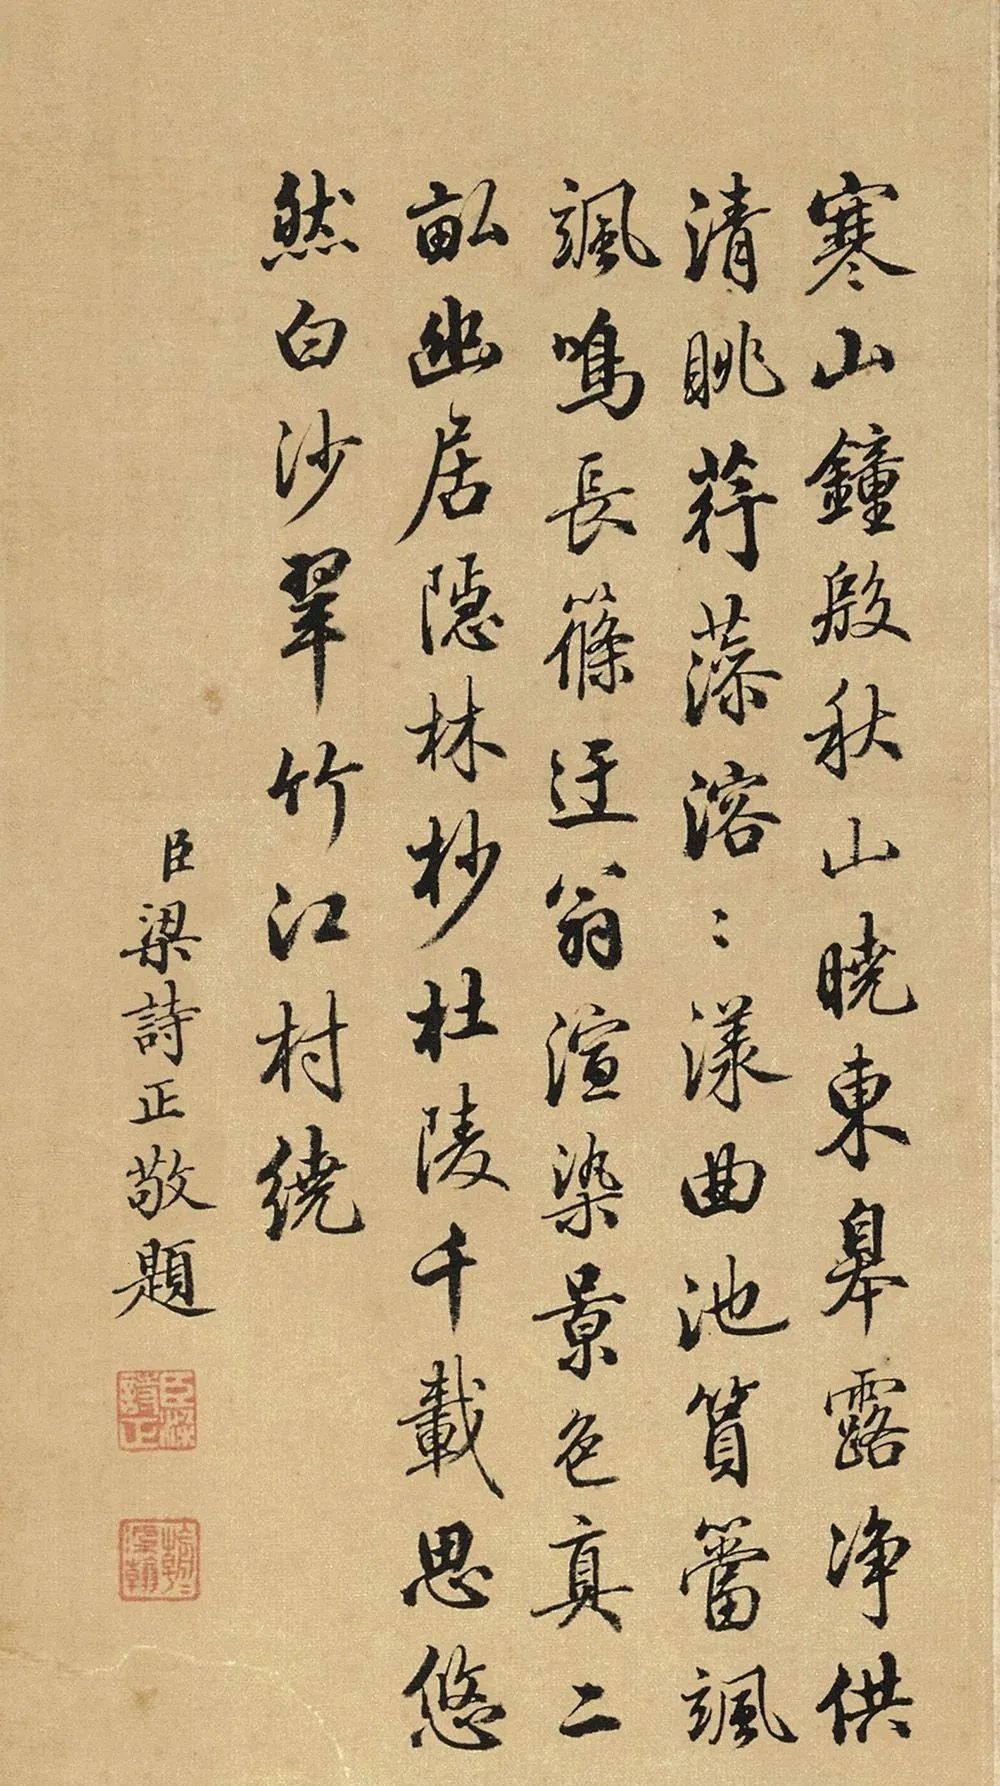 寒山鐘殷秋山曉東皋露净供
清眺荇藻溶〻漾曲池篔簹颯
颯鳴長篠迂翁渲染景色真二
畝幽居隱林杪杜陵千載思悠
然白沙翠竹江村繞
臣梁詩正敬題
臣梁詩正